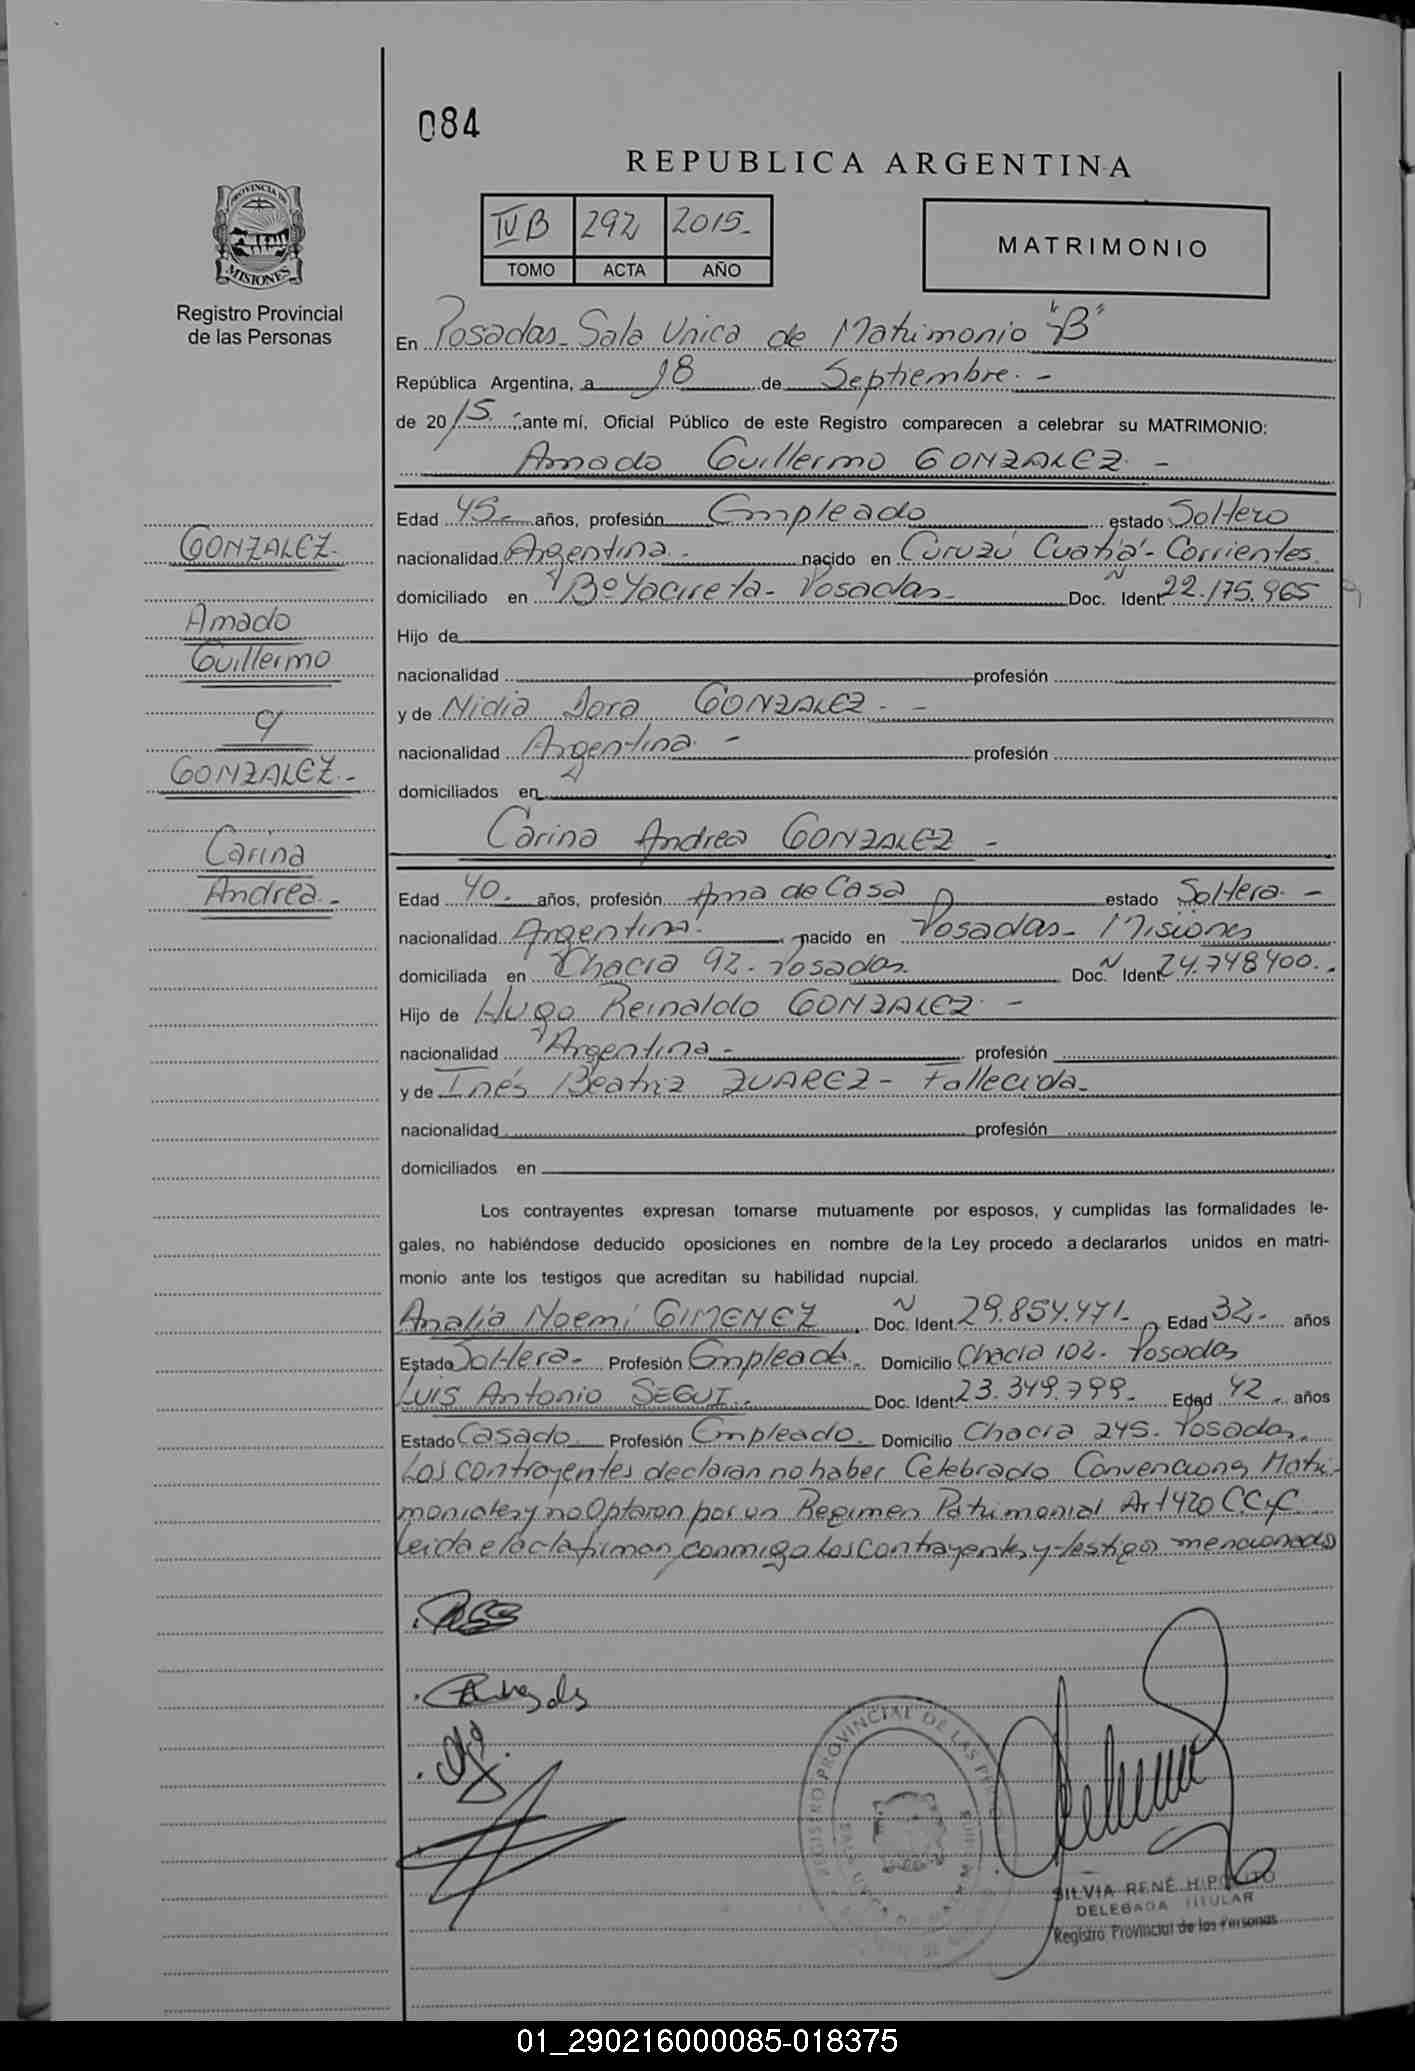 084
REPUBLICA ARGENTINA
PROVINCIA DE
MISIONES
Registro Provincial
de las Personas
IV B 292 2015-
TOMO ACTA AÑO
MATRIMONIO
En Posadas- Sala Unica de Matrimonio "B"
República Argentina, a 18 de Septiembre. -
de 2015 ; ante mí, Oficial Público de este Registro comparecen a celebrar su MATRIMONIO:
Amado Guillermo GONZALEZ. -
Edad 45.- años, profesión Empleado estado Soltero
nacionalidad Argentina.- nacido en Curuzú Cuatiá - Corrientes.
domiciliado en Bº Yacireta- Posadas- Doc. Ident. Nº 22.175.965
Hijo de
nacionalidad profesión
y de Nidia Dora GONZALEZ. - -
nacionalidad Argentina. - profesión
domiciliados en
Carina Andrea GONZALEZ -
Edad 40.- años, profesión Ama de Casa estado Soltera. -
nacionalidad Argentina. nacido en Posadas- Misiones
domiciliada en Chacra 92.- Posadas. Doc. Ident. N 24.748400..
Hijo de Hugo Reinaldo GONZALEZ. -
nacionalidad Argentina.- profesión
y de Inés Beatriz JUAREZ - Fallecida.-
nacionalidad profesión
domiciliados en
Los contrayentes expresan tomarse mutuamente por esposos, y cumplidas las formalidades le-
gales, no habiéndose deducido oposiciones en nombre de la Ley procedo a declararlos unidos en matri-
monio ante los testigos que acreditan su habilidad nupcial.
Analía Noemí GIMENEZ Doc. Ident. N 29.854.471.- Edad 32.- años
Estado Soltera.- Profesión Empleada. Domicilio Chacra 102.- Posadas
LUIS Antonio SEGUI.- Doc. Ident. 23.349.799.- Edad 42.- años
Estado Casado. Profesión Empleado. Domicilio Chacra 245.- Posadas.
Los contrayentes declaran no haber Celebrado Convenciones Matri-
moniales y no Optaron por un Regimen Patrimonial Art 420 CC.yC.
Leida el acta firman conmigo los contrayentes y testigos mencionados
GONZALEZ.-
Amado
Guillermo
c/
GONZALEZ.-
Carina
Andrea.-
REGISTRO PROVINCIAL DE LAS PERSONAS
SILVIA RENÉ HIPOLITO
DELEGADA TITULAR
Registro Provincial de las Personas
01_290216000085-018375